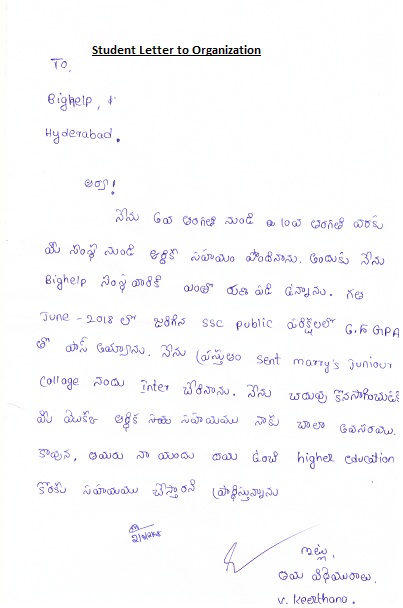 Student Letter to Organization
To,
Bighelp,
Hyderabad.
ఆర్యా!
నేను 6వ తరగతి నుండి 10వ తరగతి వరకు
మీ సంస్థ నుండి ఆర్థిక సహాయం పొందినాను. అందుకు నేను
Bighelp సంస్థ వారికి ఎంతో రుణ పడి ఉన్నాను. గత
June - 2018 లో జరిగిన SSC public పరీక్షలలో GPA
తో పాస్ అయ్యాను. నేను ప్రస్తుతం sent marry's Juniour
collage నందు Inter చేరినాను. నేను చదువు కొనసాగించుటకు
మీ యొక్క ఆర్థిక సహాయము నాకు చాలా అవసరము.
కావున, తమరు నా యందు దయ ఉంచి higher education
కొరకు సహాయము చేస్తారని ప్రార్థిస్తున్నాను
ఇట్లు,
తమ విధేయురాలు.
V. Keerthana.